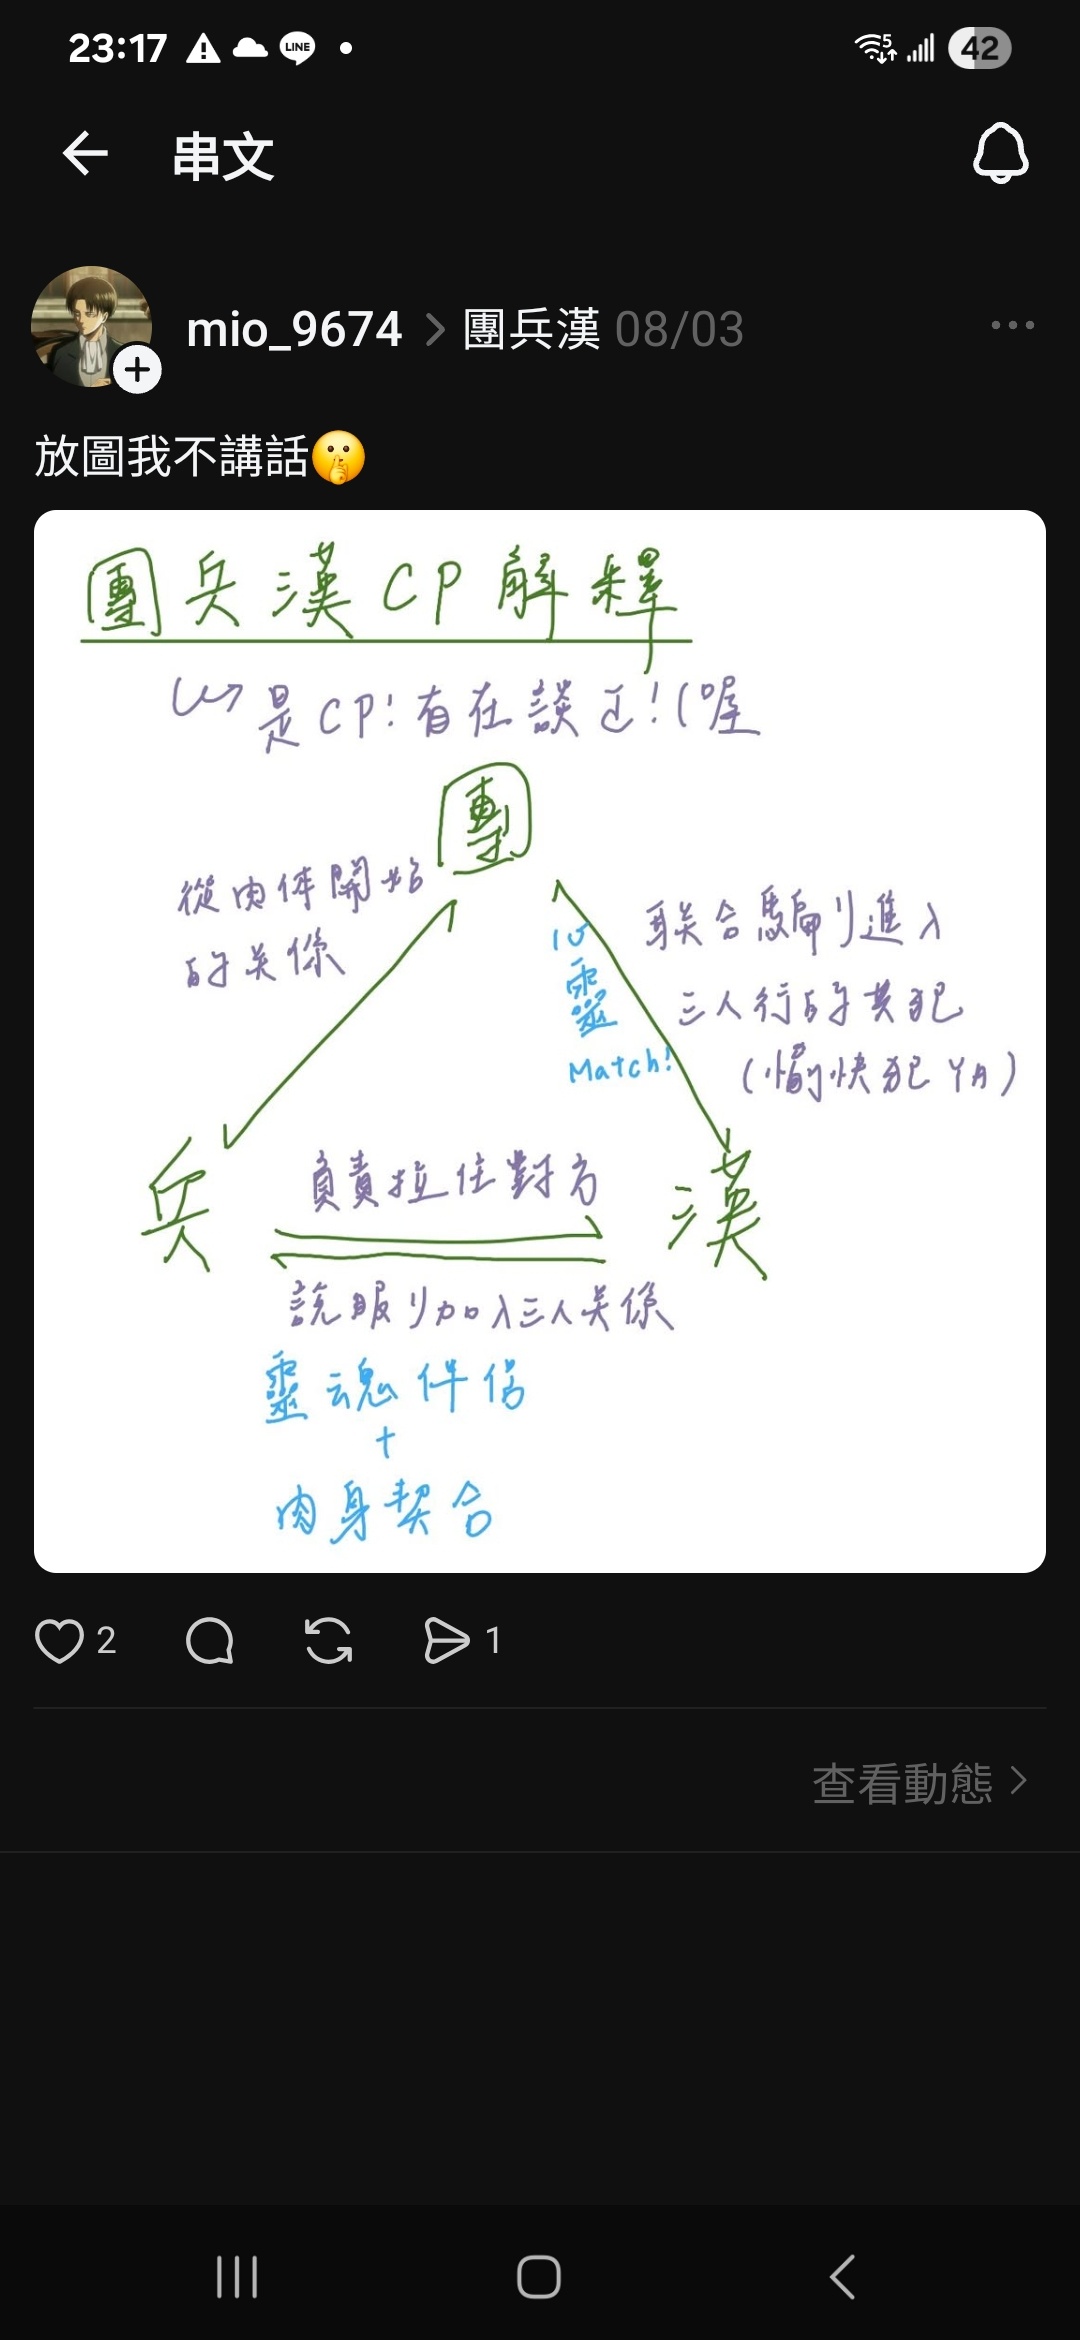 23:17 LINE 5 42
串文
mio_9674 > 團兵漢 08/03
放圖我不講話🤫
團兵漢CP解釋
是CP!有在談 !(喔
團
從肉体開始
的关係
联合騙リ進入
三人行的共犯
(愉快犯YA)
心
靈
Match!
兵
負責拉住對方
漢
說服リ加入三人关係
靈魂伴侶
+
肉身契合
2 1
查看動態 >